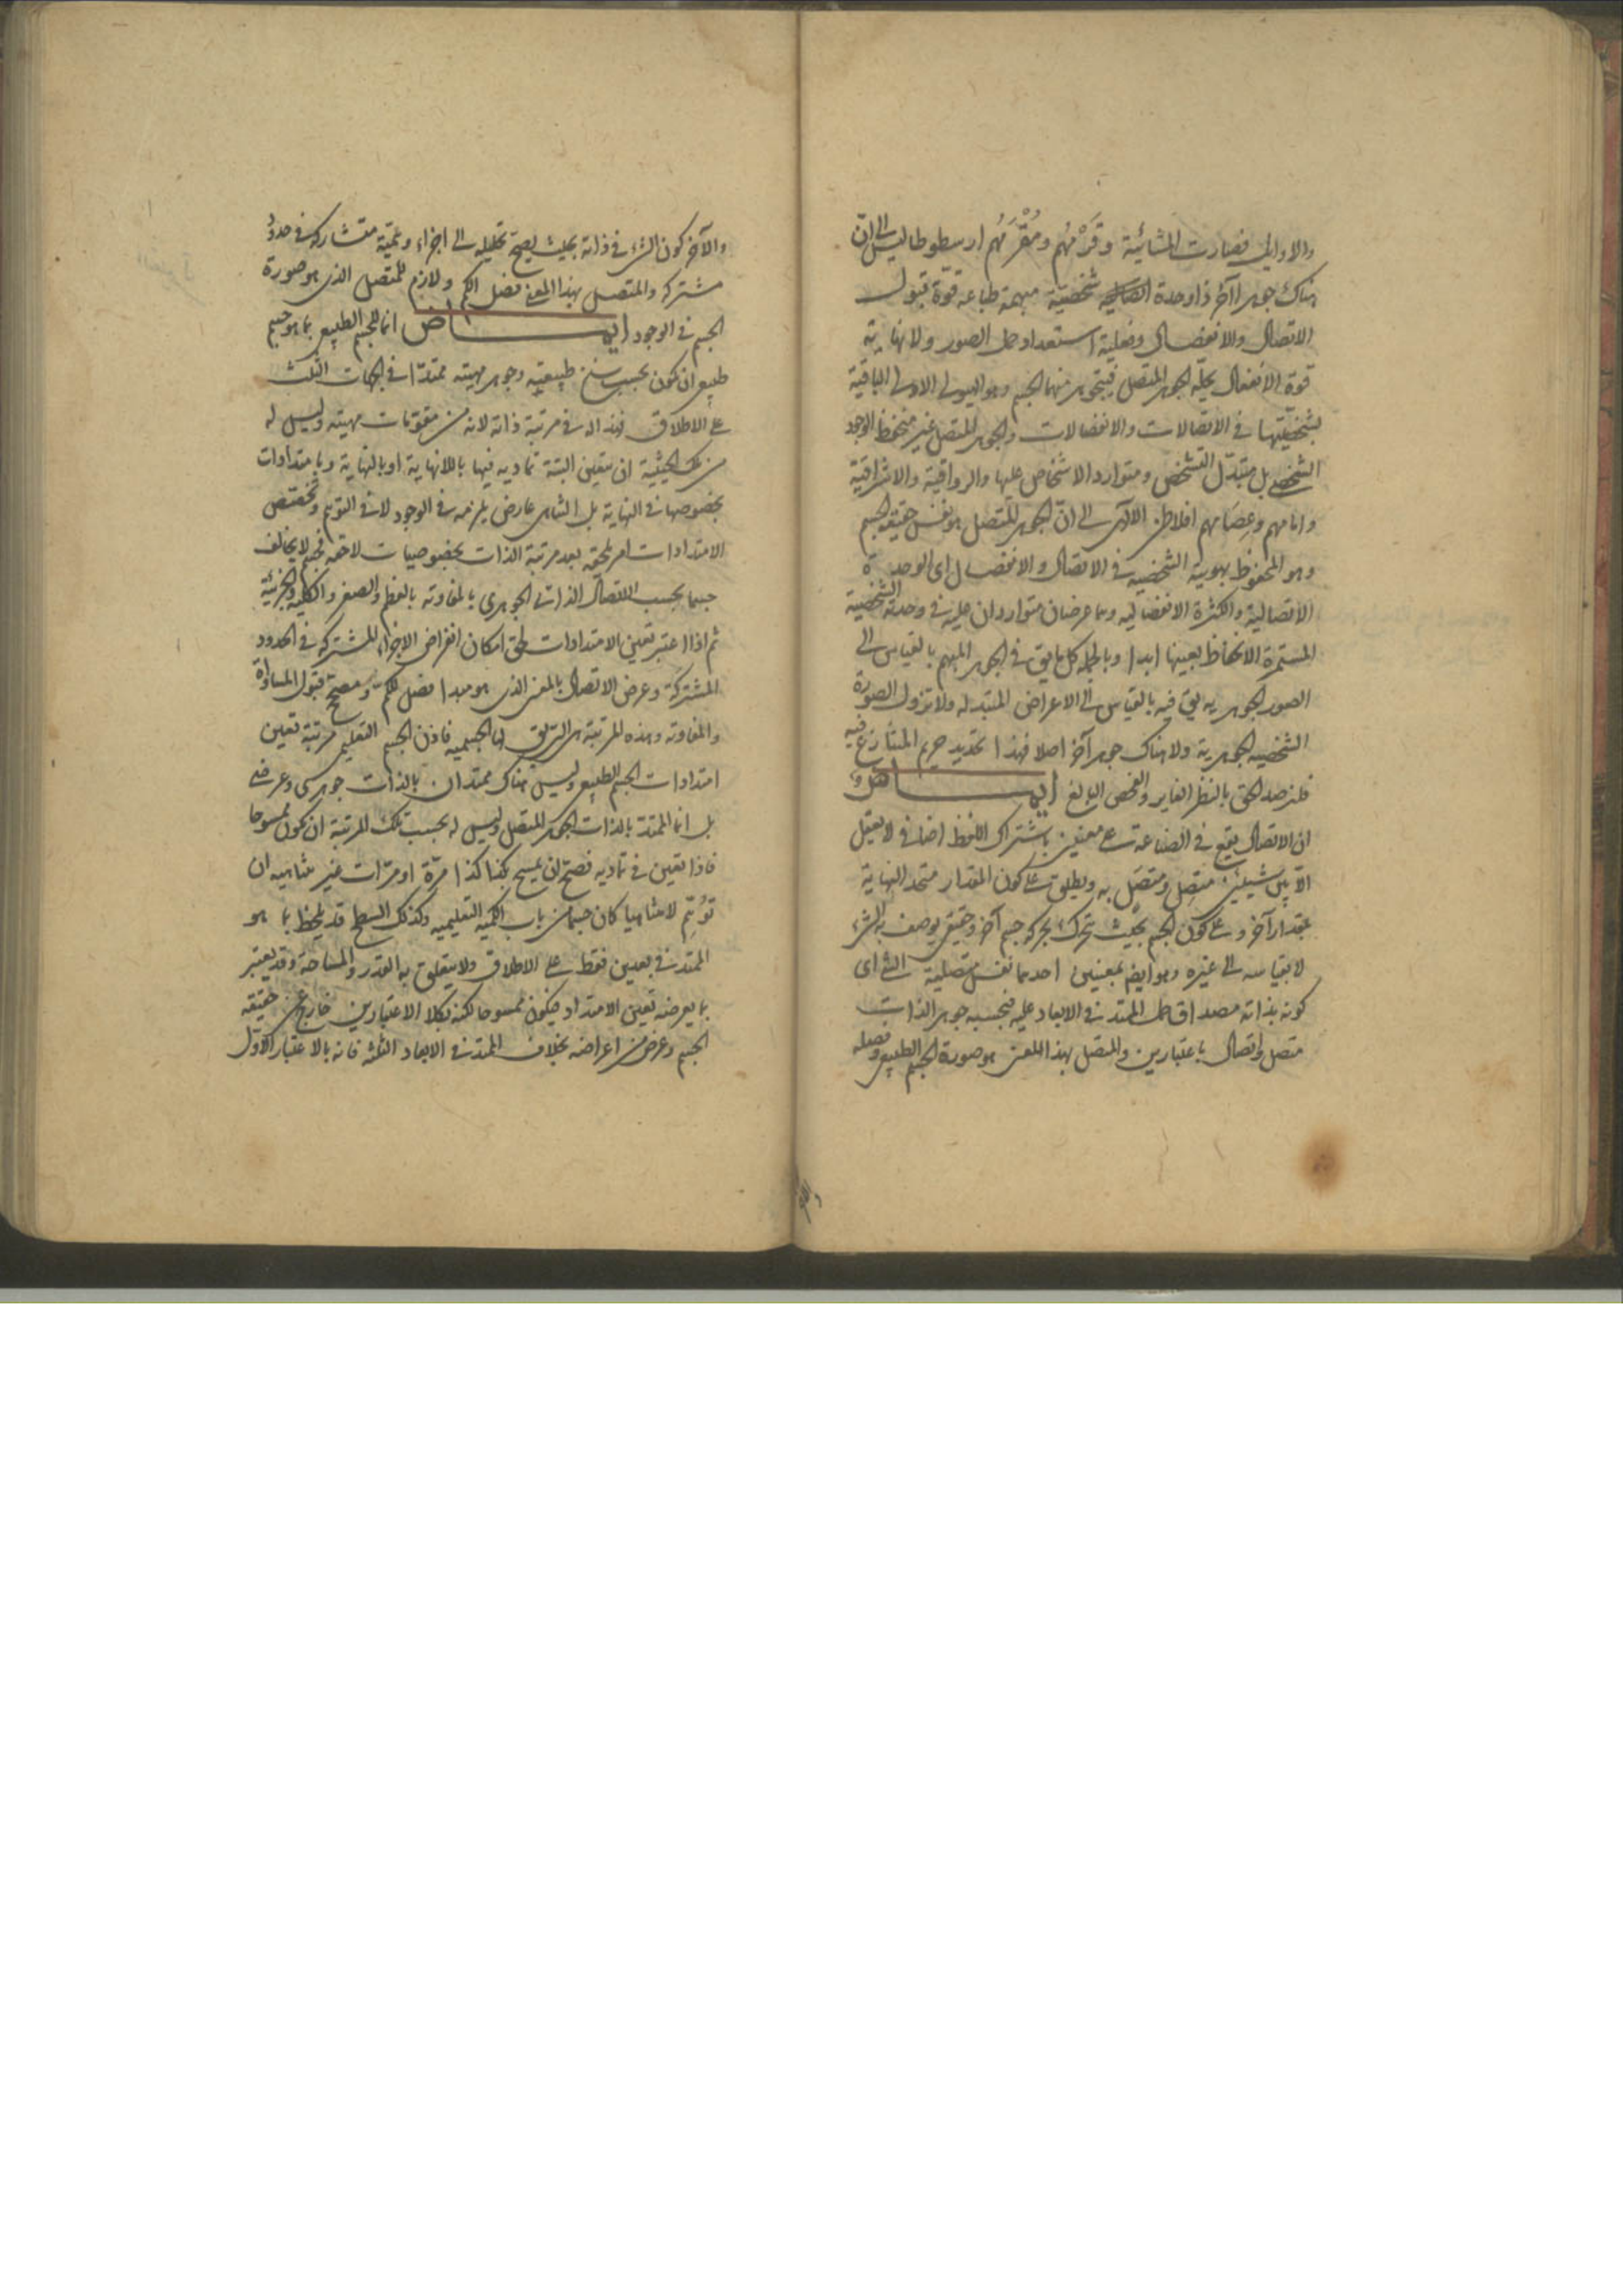 والاوائل فصارت المشائية وقَرْمُهم ومُقْرَمُهم ارسطوطاليس الى ان
هناك جوهرا آخر ذا وحدة شخصية مبهمة طباعه قوّة قبول
الاتصال والانفصال وفعلية استعداد حمل الصور ولا نهاية
قوة الانفعال يحلّه الجوهر المتصل فيتجوهر منهما الجسم وهو الهيولى الاولى الباقية
بشخصيتها في الاتصالات والانفصالات والجوهر المتصل غير منحفظ الوجود
الشخصي بل متبدّل التشخص ومتوارد الاشخاص عليها والرواقية والاشراقية
وامامهم افلاطن الالهى الى انّ الجوهر المتصل هو نفس حقيقة الجسم
وهو المحفوظ بهويته الشخصية في الاتصال والانفصال اى الوحدة
الاتصالية والكثرة الانفصاليه وهما عرضان متواردان عليه في وحدته الشخصية
المستمرة الانحفاظ بعينها ابدا وبالجملة كل ما يق في الجوهر المبهم بالقياس الى
الصور الجوهريه يق فيه بالقياس الى الاعراض المتبدله ولا تزول الصورة
الشخصيه الجوهرية ولا هناك جوهر آخر اصلا فهذا تحديد حريم المتنازع فيه
فلنرصد الحق بالنظر الغاير والفحص البالغ ايماض
ان الاتصال يقع في الصناعة على معنيين باشتراك اللفظ اضافى لا يعقل
الّا بين شيئين متصِل ومتصَل به ويطلق على كون المقدار متحد النهاية
بمقدار آخر وعلى كون الجسم بحيث تحرك بحركه جسم آخر وحقيقى يوصف به الشئ
لا بقياسه الى غيره وهو ايضم بمعنيين احدهما نفس متصلية الشئ اى
كونه بذاته مصداق حمل الممتد في الابعاد عليه فبحسبه جوهر الذات
متصل واتصال باعتبارين والمتصل بهذا المعنى هو صورة الجسم الطبيعى وفصله
والآخر كون الشئ في ذاته بحيث يصح تحليله الى اجزاء وهميّة متشاركه في حدود
مشتركه والمتصل بهذا المعنى فصل الكم ولازم للمتصل الذى هو صورة
الجسم في الوجود ايماض انما للجسم الطبيعى بما هو جسم
طبيعى ان يكون بحسب سنخ طبيعته وجوهر مهيته ممتدّا في الجهات الثلث
على الاطلاق فهذا له في مرتبة ذاته لانه من مقوّمات مهيته وليس له
من تلك الحيثية ان يتعين البتة تماديه فيها باللانهاية او بالنهاية وبامتدادات
بخصوصها في النهاية بل التناهى عارض يلزمه في الوجود لا في التوهم وتخصّص
الامتدادات امر يلحقه بعد مرتبة الذات بخصوصيات لاحقه فجسم لا يخالف
جسما بحسب الاتصال الذاتى الجوهري بالمفاوته بالعظم والصغر والكلية والجزئية
ثم اذا اعتبر تعين الامتدادات لحق امكان انفراض الاجزاء المشتركه في الحدود
المشتركة وعرض الاتصال بالمعنى الذى هو مبدا فصل للكم ومصحح قبول المساواة
والمفاوته وهذه المرتبة هى التى يق لها الجسميه فاذن الجسم التعليمى مرتبة تعين
امتدادات الجسم الطبيعى وليس هناك ممتدان بالذات جوهرى وعرضى
بل انما الممتد بالذات الجوهر المتصل وليس له بحسب تلك المرتبة ان يكون ممسوحا
فاذا تعين في تماديه فصح ان يمسح بكذا كذا مرّة او مرّات غير متناهيه ان
تُوُهِّم لا متناهيا كان جسما من باب الكميه التعليميه وكذلك السطح قد يلحظ بما هو
الممتد في بعدين فقط على الاطلاق ولا يتعلق به القدر والمساحة وقد يعتبر
بما يعرضه تعين الامتداد فيكون ممسوحا لكنه بكلا الاعتبارين خارج عن حقيقة
الجسم وعرض من اعراضه بخلاف الممتد في الابعاد الثلثه فانه بالاعتبار الاوّل